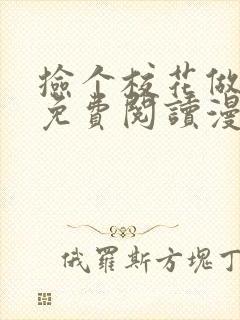 撿个校花做
免費閱讀漫
俄羅斯方塊丁